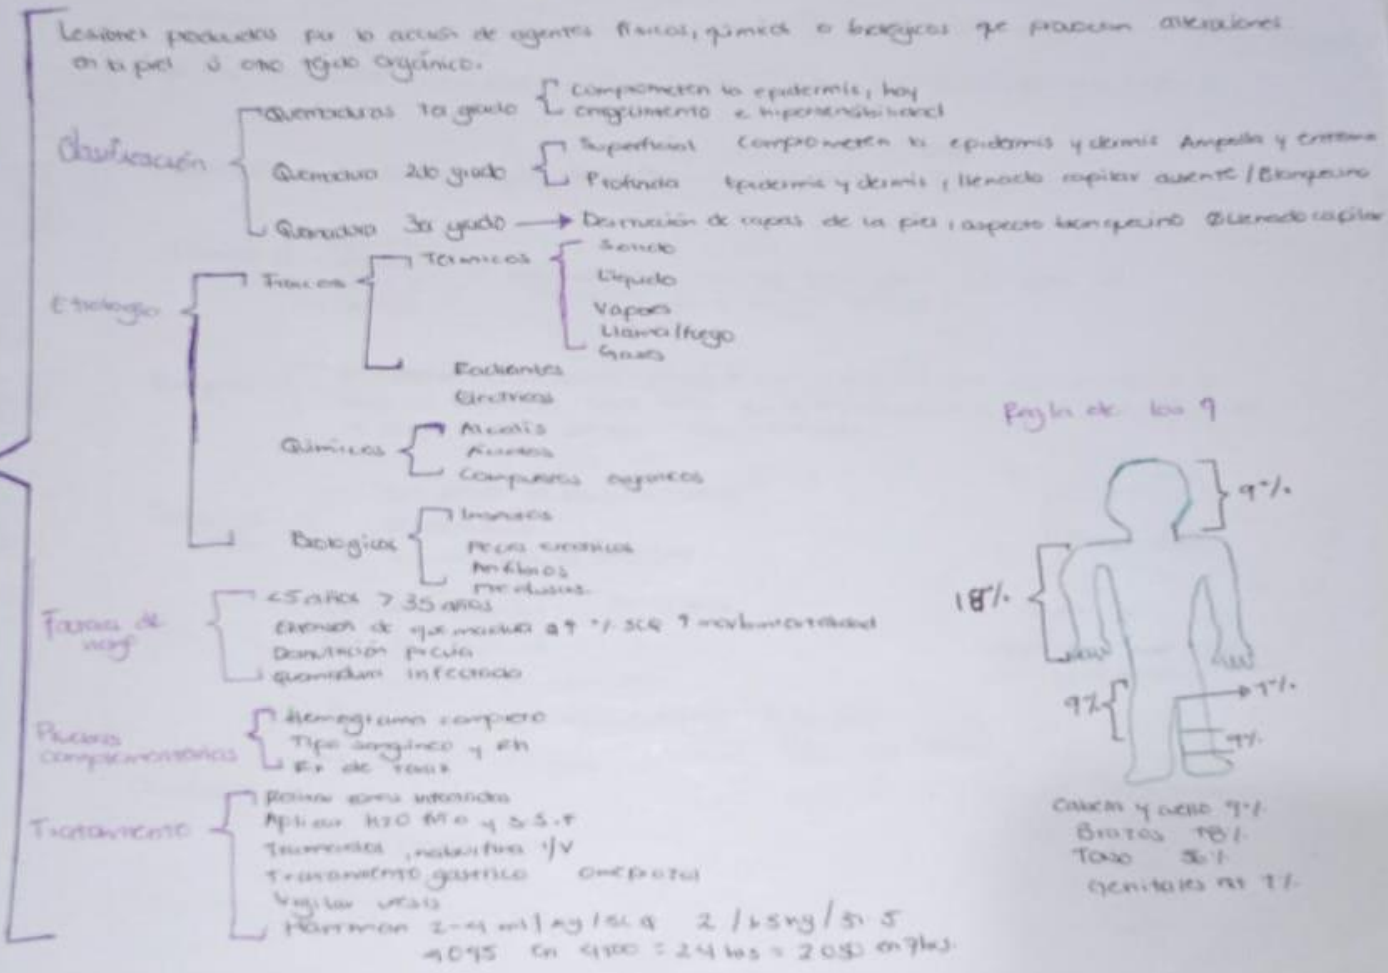 Lesiones producidas por la acción de agentes físicos, químicos o biológicos que provocan alteraciones
en la piel u otro tejido orgánico.
Clasificación
Quemaduras 1er grado
Comprometen la epidermis, hay
enrojecimiento e hipersensibilidad
Quemadura 2do grado
Superficial Comprometen la epidermis y dermis Ampolla y eritema
Profunda Epidermis y dermis, llenado capilar ausente / Blanquecino
Quemadura 3er grado → Destrucción de capas de la piel, aspecto blanquecino Ø Llenado capilar
Etiología
Físicos
Térmicos
Líquido
Vapores
Llama/fuego
Gases
Radiantes
Eléctricos
Químicos
Alcalis
Ácidos
Compuestos orgánicos
Biológicos
Insectos
Peces eléctricos
Anfibios
Medusas
<5 años > 35 años
Extensión de quemadura SCQ ↑ morbimortalidad
Desnutrición previa
Quemadura infectada
Pruebas
complementarias
Hemograma completo
Tipo sanguíneo y Rh
Rx de Torax
Tratamiento
Aplicar H2O y S.S.F
Tramadol, I/V
Tratamiento gástrico Omeprazol
Vigilar
2-4 ml/kg/SCQ
24 hrs
Regla de los 9
9%
18%
9%
9%
Cabeza y cuello 9%
Brazos 18%
Genitales 1%